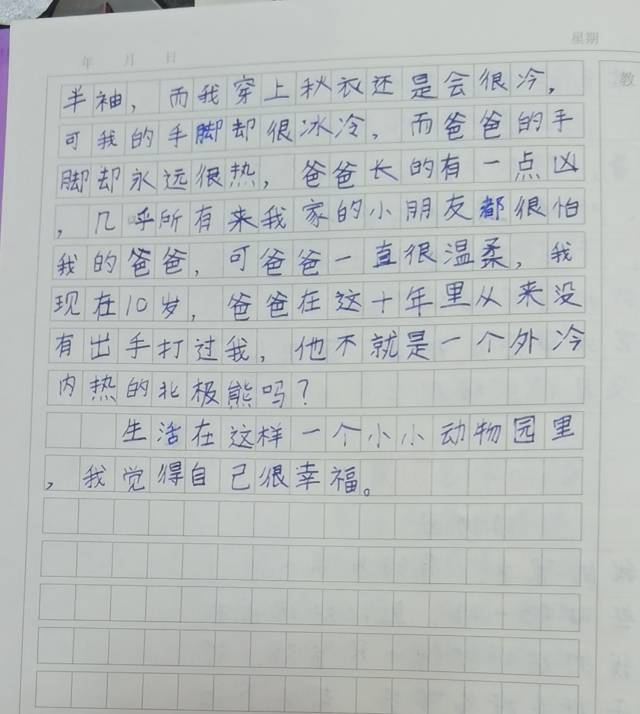 年 月 日 星期
教
半袖，而我穿上秋衣还是会很冷，
可我的手脚却很冰冷，而爸爸的手
脚却永远很热，爸爸长的有一点凶
，几乎所有来我家的小朋友都很怕
我的爸爸，可爸爸一直很温柔，我
现在10岁，爸爸在这十年里从来没
有出手打过我，他不就是一个外冷
内热的北极熊吗？
生活在这样一个小小动物园里
，我觉得自己很幸福。